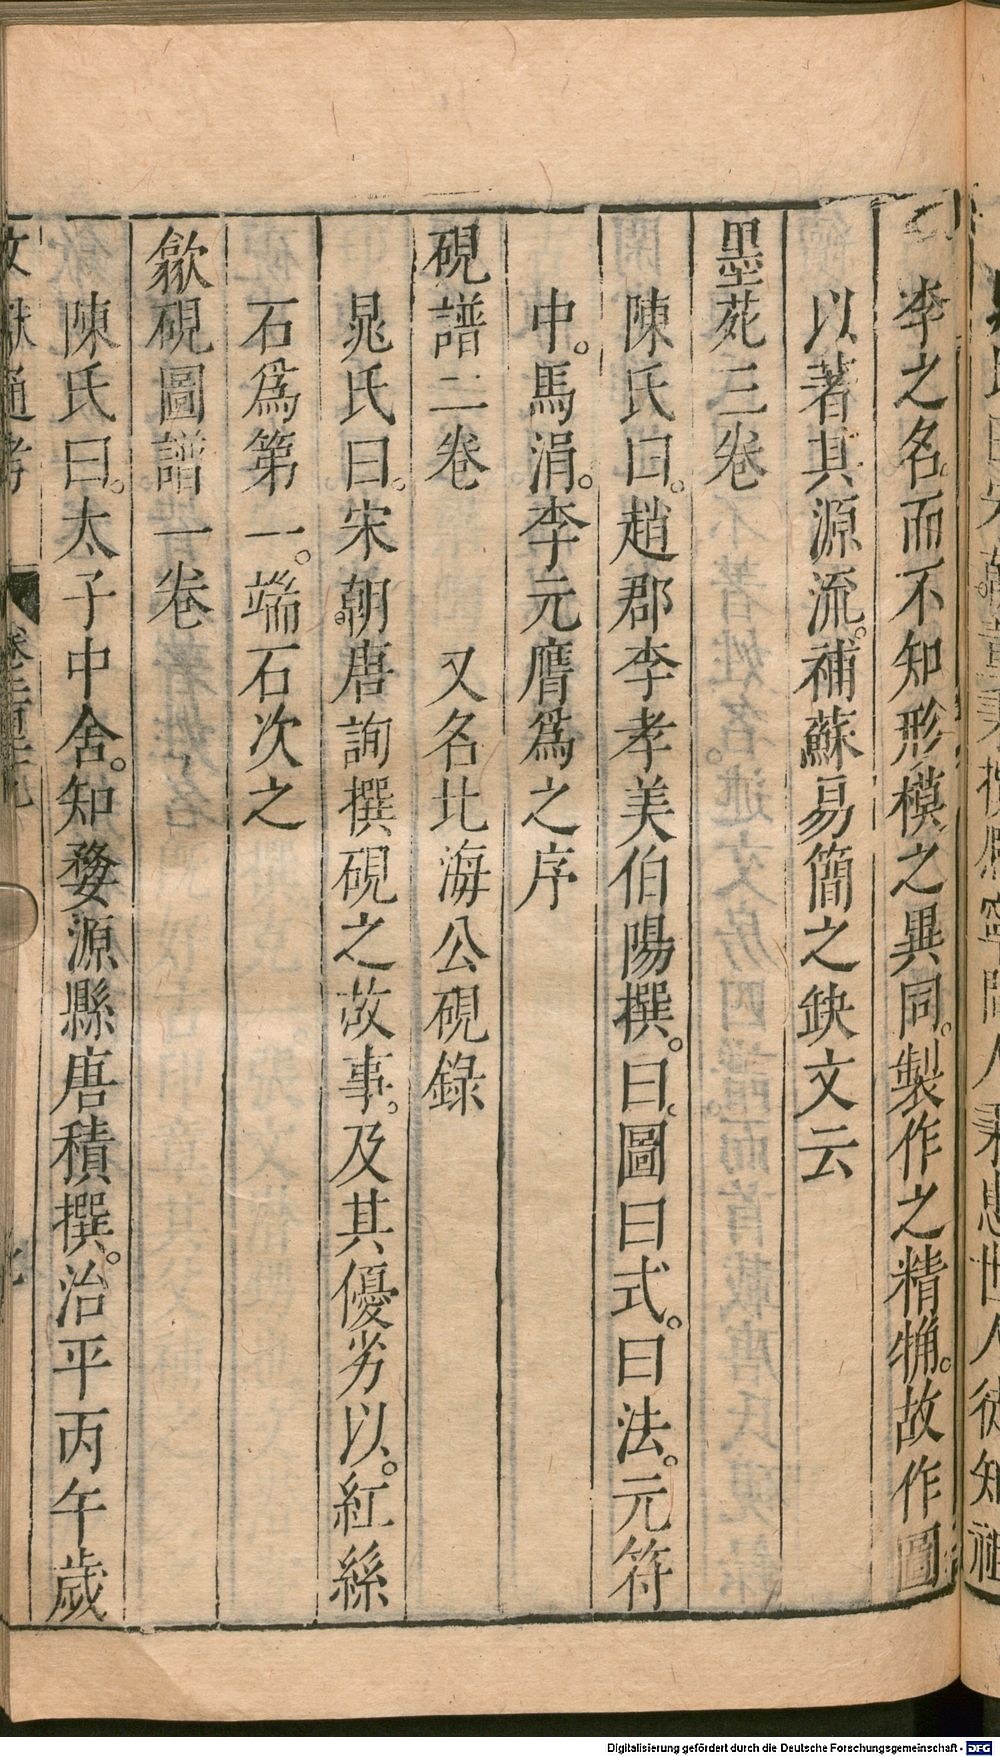 李之名。而不知形模之異同。製作之精觕。故作圖
以著其源流。補蘇易簡之缺文云
墨苑三卷
陳氏曰。趙郡李孝美伯陽撰。曰圖曰式。曰法。元符
中。馬涓。李元膺爲之序
硯譜二卷 又名北海公硯錄
晁氏曰。宋朝唐詢撰硯之故事。及其優劣以。紅絲
石爲第一。端石次之
歙硯圖譜一卷
陳氏曰。太子中舍。知婺源縣唐積撰。治平丙午歲
文獻通考
Digitalisierung gefördert durch die Deutsche Forschungsgemeinschaft - DFG